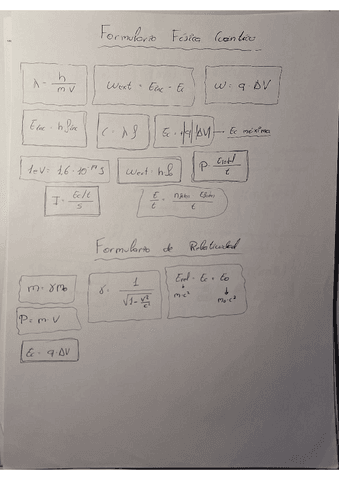 Formulario Física Cuántica
λ = h / m v
Wext = Einc - Ec
W = q ΔV
Einc = h f inc
C = λ f
Ec = |q| |ΔV| → Ec máxima
1eV = 1,6 · 10⁻¹⁹ J
Wext = h f
P = Etotal / t
I = E/t / s
E / t =
Formulario de Relatividad
m = γ m₀
γ = 1 / √(1 - v²/c²)
Etotal = Ec + E₀
m·c²
m₀·c²
P = m v
Ec = q · ΔV